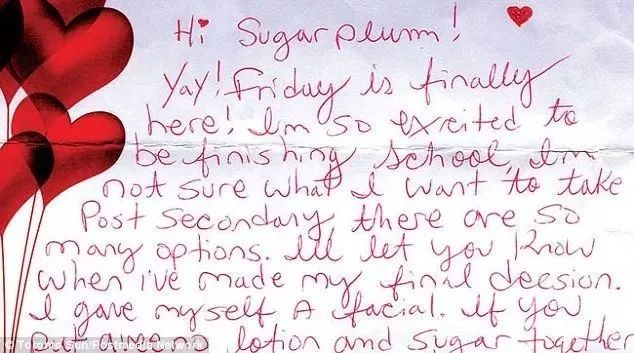 Hi Sugarplum!
Yay! Friday is finally
here! Im so excited to
be finishing school, Im
not sure what I want to take
Post Secondary there are so
many options. I'll let you know
when i've made my final deesion.
I gave myself A facial. If you
lotion and Sugar together
© Toronto Sun/Postmedia Network